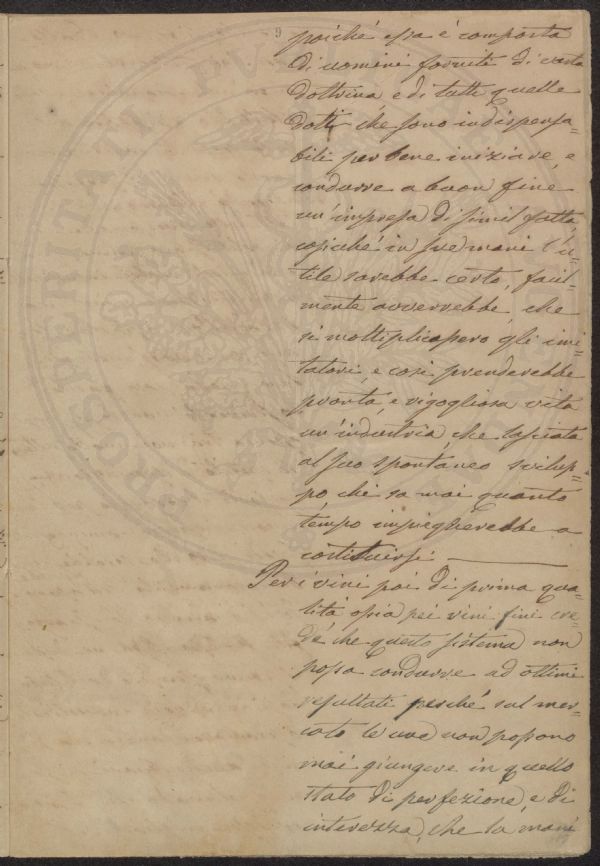 9
poiché essa è composta
di uomini forniti di vasta
dottrina, e di tutte quelle
doti che sono indispensa=
bili per bene iniziare, e
condurre a buon fine
un'impresa di simil fatta,
cosicché in sue mani l'u=
tile sarebbe certo, facil=
mente avverrebbe, che
si moltiplicassero gli imi=
tatori, e così prenderebbe
pronta, e rigogliosa vita
un'industria, che lasciata
al suo spontaneo svilup=
po, chi sa mai quanto
tempo impiegherebbe a
costituirsi
Per i vini poi di prima qua=
lità ossia pei vini fini cre=
de che questo sistema non
possa condurre ad ottimi
resultati perché sul mer=
cato le uve non possono
mai giungere in quello
stato di perfezione, e di
interezza, che la mani